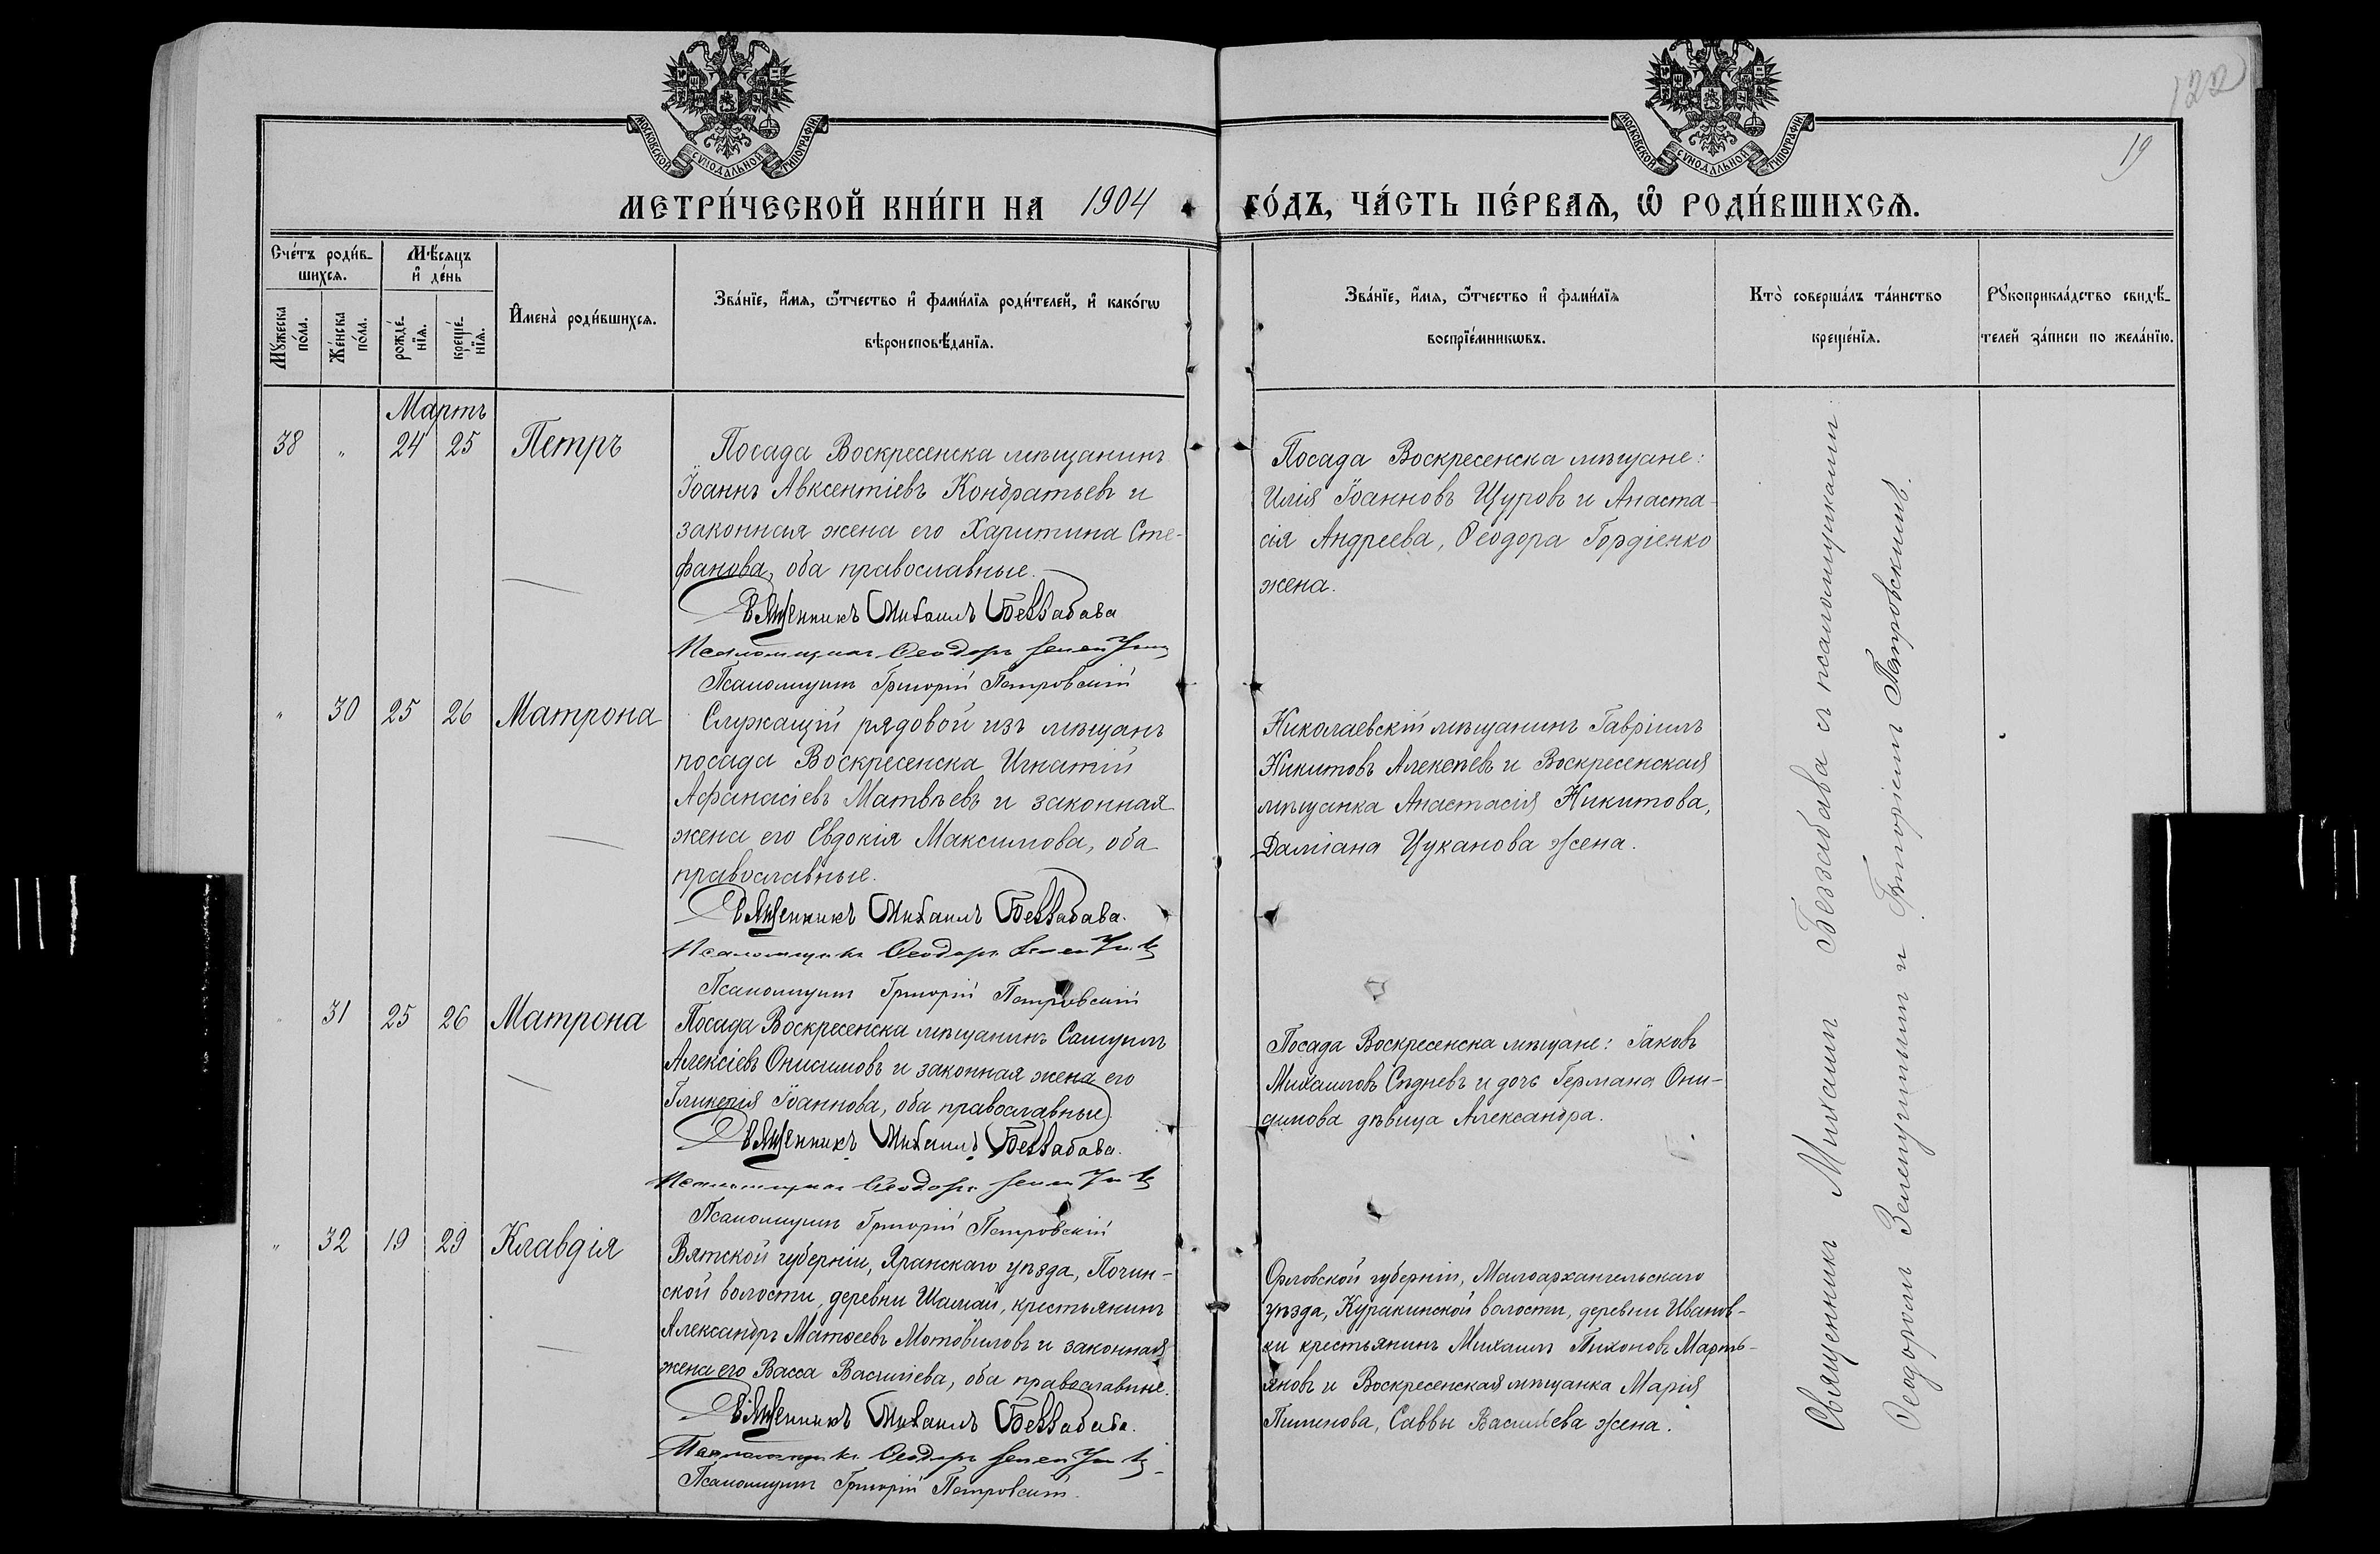 122
19
МОСКОВСКОЙ СѴНОДАЛЬНОЙ ТИПОГРАФІИ
МОСКОВСКОЙ СѴНОДАЛЬНОЙ ТИПОГРАФІИ
МЕТРИ́ЧЕСКОЙ КНИ́ГИ НА 1904 ГО́ДЪ, ЧА́СТЬ ПЕ́РВАѦ, Ѡ҆ РОДИ́ВШИХСѦ.
Сче́тъ роди́в-
шихсѧ.
Мꙋ́жеска по́ла.
Же́нска по́ла.
Мѣ́сѧцъ
и҆ де́нь
рожде́-
нїѧ.
креще́-
нїѧ.
И҆мена̀ роди́вшихсѧ.
Зва́нїе, и҆́мѧ, ѻ҆́тчество и҆ фами́лїѧ роди́телей, и҆ како́гѡ
вѣроисповѣ́данїѧ.
Зва́нїе, и҆́мѧ, ѻ҆́тчество и҆ фами́лїѧ
воспрїе́мникѡвъ.
Кто̀ соверша́лъ та́инство
креще́нїѧ.
Рꙋкоприкла́дство свидѣ́-
телей за́писи по жела́нїю.
Мартъ
38 " 24 25 Петръ
Посада Воскресенска мѣщанинъ
Іоаннъ Авксентіевъ Кондратьевъ и
законная жена его Харитина Сте-
фанова, оба православные.
Священникъ Михаилъ Беззабава
Псаломщикъ Ѳеодоръ
Псаломщикъ Григорій Петровскій
Посада Воскресенска мѣщане:
Илія Іоанновъ Щуровъ и Анаста-
сія Андреева, Ѳеодора Гордіенко
жена.
" 30 25 26 Матрона
Служащій рядовой изъ мѣщанъ
посада Воскресенска Игнатій
Афанасіевъ Матвѣевъ и законная
жена его Евдокія Максимова, оба
православные.
Священникъ Михаилъ Беззабава.
Псаломщикъ Ѳеодоръ
Псаломщикъ Григорій Петровскій
Николаевскій мѣщанинъ Гавріилъ
Никитовъ Алексѣевъ и Воскресенская
мѣщанка Анастасія Никитова,
Даміана Цуканова жена.
" 31 25 26 Матрона
Посада Воскресенска мѣщанинъ Самуилъ
Алексіевъ Онисимовъ и законная жена его
Гликерія Іоаннова, оба православные
Священникъ Михаилъ Беззабава.
Псаломщикъ Ѳеодоръ
Псаломщикъ Григорій Петровскій
Посада Воскресенска мѣщане: Іаковъ
Михаиловъ Сѣдневъ и дочь Германа Они-
симова дѣвица Александра.
" 32 19 29 Клавдія
Вятской губерніи, Яранскаго уѣзда, Почин-
ской волости, деревни Шамаи, крестьянинъ
Александръ Матѳеевъ Мотовиловъ и законная
жена его Васса Василіева, оба православные.
Священникъ Михаилъ Беззабава.
Псаломщикъ Ѳеодоръ
Псаломщикъ Григорій Петровскій.
Орловской губерніи, Малоархангельскаго
уѣзда, Куракинской волости, деревни Иванов-
ки крестьянинъ Михаилъ Тихоновъ Марть-
яновъ и Воскресенская мѣщанка Марія
Пименова, Саввы Василіева жена.
Священникъ Михаилъ Беззабава съ псаломщиками
Ѳеодоромъ и Григоріемъ Петровскимъ.